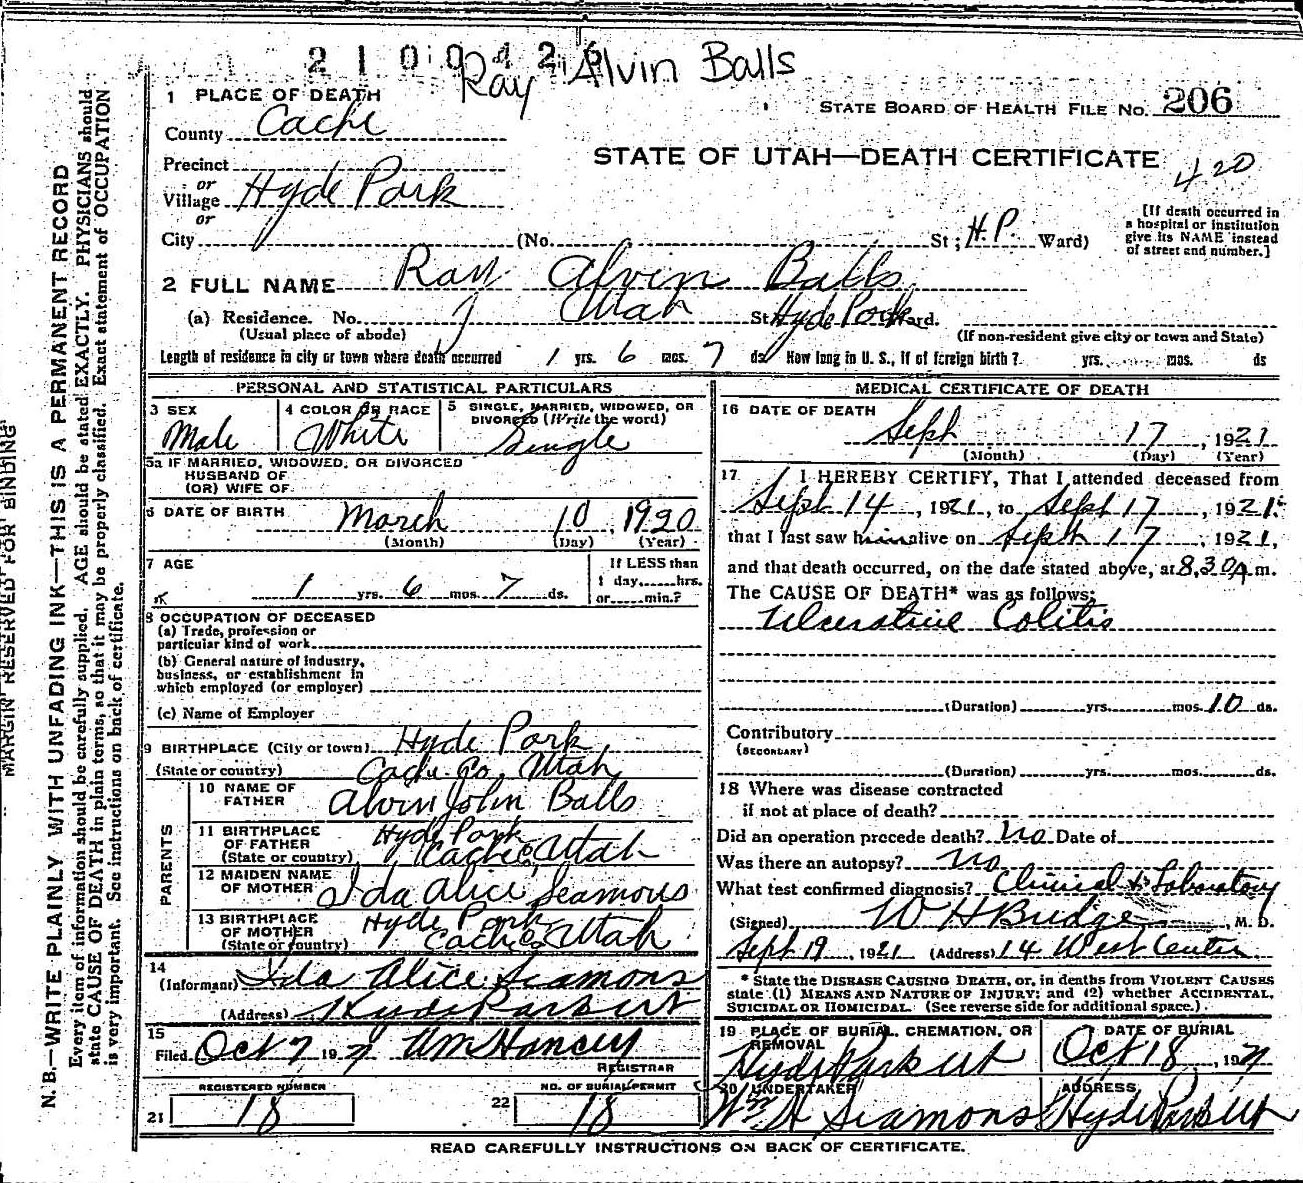 2100426
Ray Alvin Balls
1 PLACE OF DEATH
STATE BOARD OF HEALTH FILE No. 206
County Cache
STATE OF UTAH—DEATH CERTIFICATE
420
Precinct
or
Village Hyde Park
or
City (No. St; H.P. Ward)
[If death occurred in
a hospital or institution
give its NAME instead
of street and number.]
2 FULL NAME Ray Alvin Balls
(a) Residence. No. Utah St Hyde Park Ward.
(Usual place of abode) (If non-resident give city or town and State)
Length of residence in city or town where death occurred 1 yrs. 6 mos. 7 ds. How long in U. S., if of foreign birth? yrs. mos. ds
PERSONAL AND STATISTICAL PARTICULARS
3 SEX
Male
4 COLOR OR RACE
White
5 SINGLE, MARRIED, WIDOWED, OR
DIVORCED (Write the word)
Single
5a IF MARRIED, WIDOWED, OR DIVORCED
HUSBAND OF
(OR) WIFE OF
6 DATE OF BIRTH March 10, 1920
(Month) (Day) (Year)
7 AGE
1 yrs. 6 mos. 7 ds.
If LESS than
1 day,......hrs.
or......min.?
8 OCCUPATION OF DECEASED
(a) Trade, profession or
particular kind of work
(b) General nature of industry,
business, or establishment in
which employed (or employer)
(c) Name of Employer
9 BIRTHPLACE (City or town) Hyde Park
(State or country) Cache Co, Utah
PARENTS
10 NAME OF
FATHER Alvin John Balls
11 BIRTHPLACE
OF FATHER Hyde Park
(State or country) Cache Utah
12 MAIDEN NAME
OF MOTHER Ida Alice Seamons
13 BIRTHPLACE
OF MOTHER Hyde Park
(State or country) Cache Utah
14
(Informant) Ida Alice Seamons
(Address) Hyde Park Ut
15
Filed Oct 7 1921 Wm Hancey
REGISTRAR
REGISTERED NUMBER
21 18
NO. OF BURIAL PERMIT
22 18
MEDICAL CERTIFICATE OF DEATH
16 DATE OF DEATH
Sept 17, 1921
(Month) (Day) (Year)
17 I HEREBY CERTIFY, That I attended deceased from
Sept 14, 1921, to Sept 17, 1921.
that I last saw him alive on Sept 17, 1921,
and that death occurred, on the date stated above, at 8,30 A m.
The CAUSE OF DEATH* was as follows:
Ulcerative Colitis
(Duration) yrs. mos. 10 ds.
Contributory
(SECONDARY)
(Duration) yrs. mos. ds.
18 Where was disease contracted
if not at place of death?
Did an operation precede death? No Date of
Was there an autopsy? No
What test confirmed diagnosis? Clinical & Laboratory
(Signed) W H Budge, M. D.
Sept 19, 1921 (Address) 14 West Center
* State the DISEASE CAUSING DEATH, or, in deaths from VIOLENT CAUSES
state (1) MEANS AND NATURE OF INJURY; and (2) whether ACCIDENTAL,
SUICIDAL OR HOMICIDAL. (See reverse side for additional space.)
19 PLACE OF BURIAL, CREMATION, OR
REMOVAL
Hyde Park Ut
DATE OF BURIAL
Oct 18, 1921
20 UNDERTAKER
Wm H Seamons
ADDRESS
Hyde Park Ut
READ CAREFULLY INSTRUCTIONS ON BACK OF CERTIFICATE.
MARGIN RESERVED FOR BINDING
N. B.—WRITE PLAINLY WITH UNFADING INK—THIS IS A PERMANENT RECORD
Every item of information should be carefully supplied. AGE should be stated EXACTLY. PHYSICIANS should
state CAUSE OF DEATH in plain terms, so that it may be properly classified. Exact statement of OCCUPATION
is very important. See instructions on back of certificate.